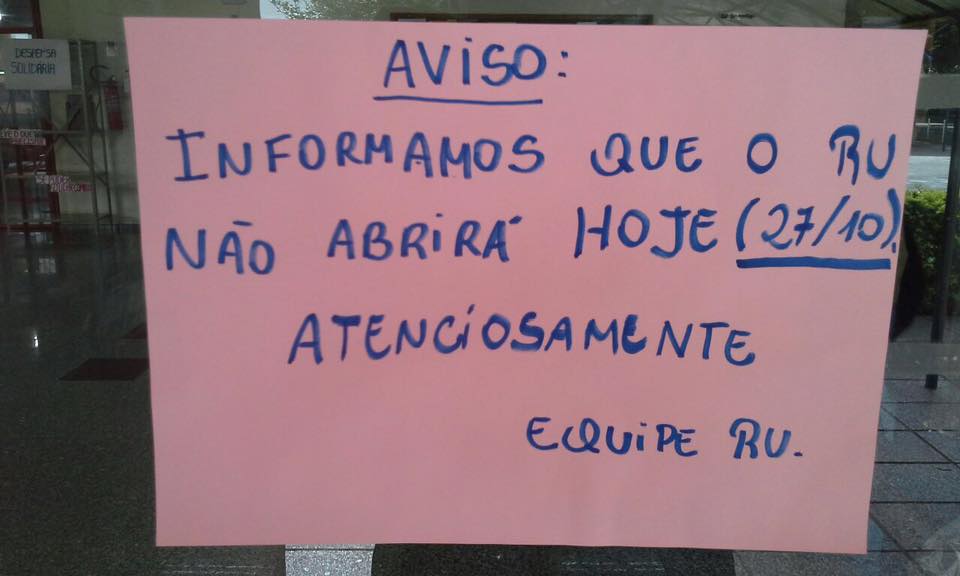 DESPENSA
SOLIDÁRIA
AVISO:
INFORMAMOS QUE O RU
NÃO ABRIRÁ HOJE (27/10).
ATENCIOSAMENTE
EQUIPE RU.